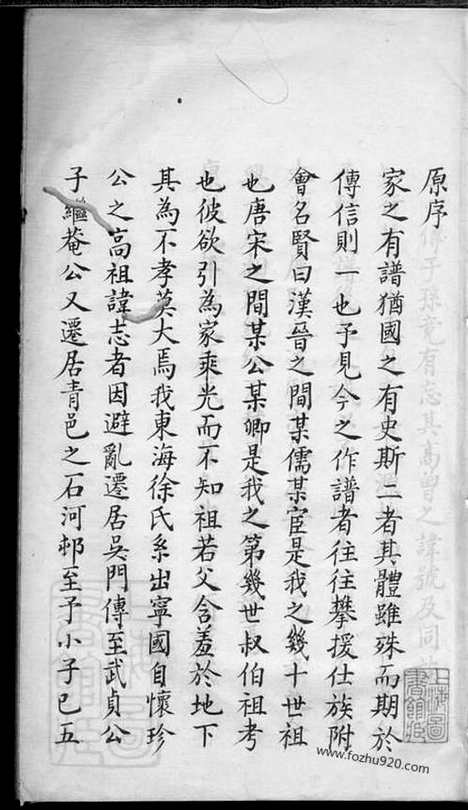 原序
家之有譜猶國之有史斯二者其體雖殊而期於
傳信則一也予見今之作譜者往往攀援仕族附
會名賢曰漢晉之間某儒某宦是我之幾十世祖
也唐宋之間某公某卿是我之第幾世叔伯祖考
也彼欲引為家乘光而不知祖若父含羞於地下
其為不孝莫大焉我東海徐氏系出寧國自懷珍
公之高祖諱志者因避亂遷居吳門傳至武貞公
子繼菴公又遷居青邑之石河邨至予小子已五
上海圖書館藏
www.fozhu920.com